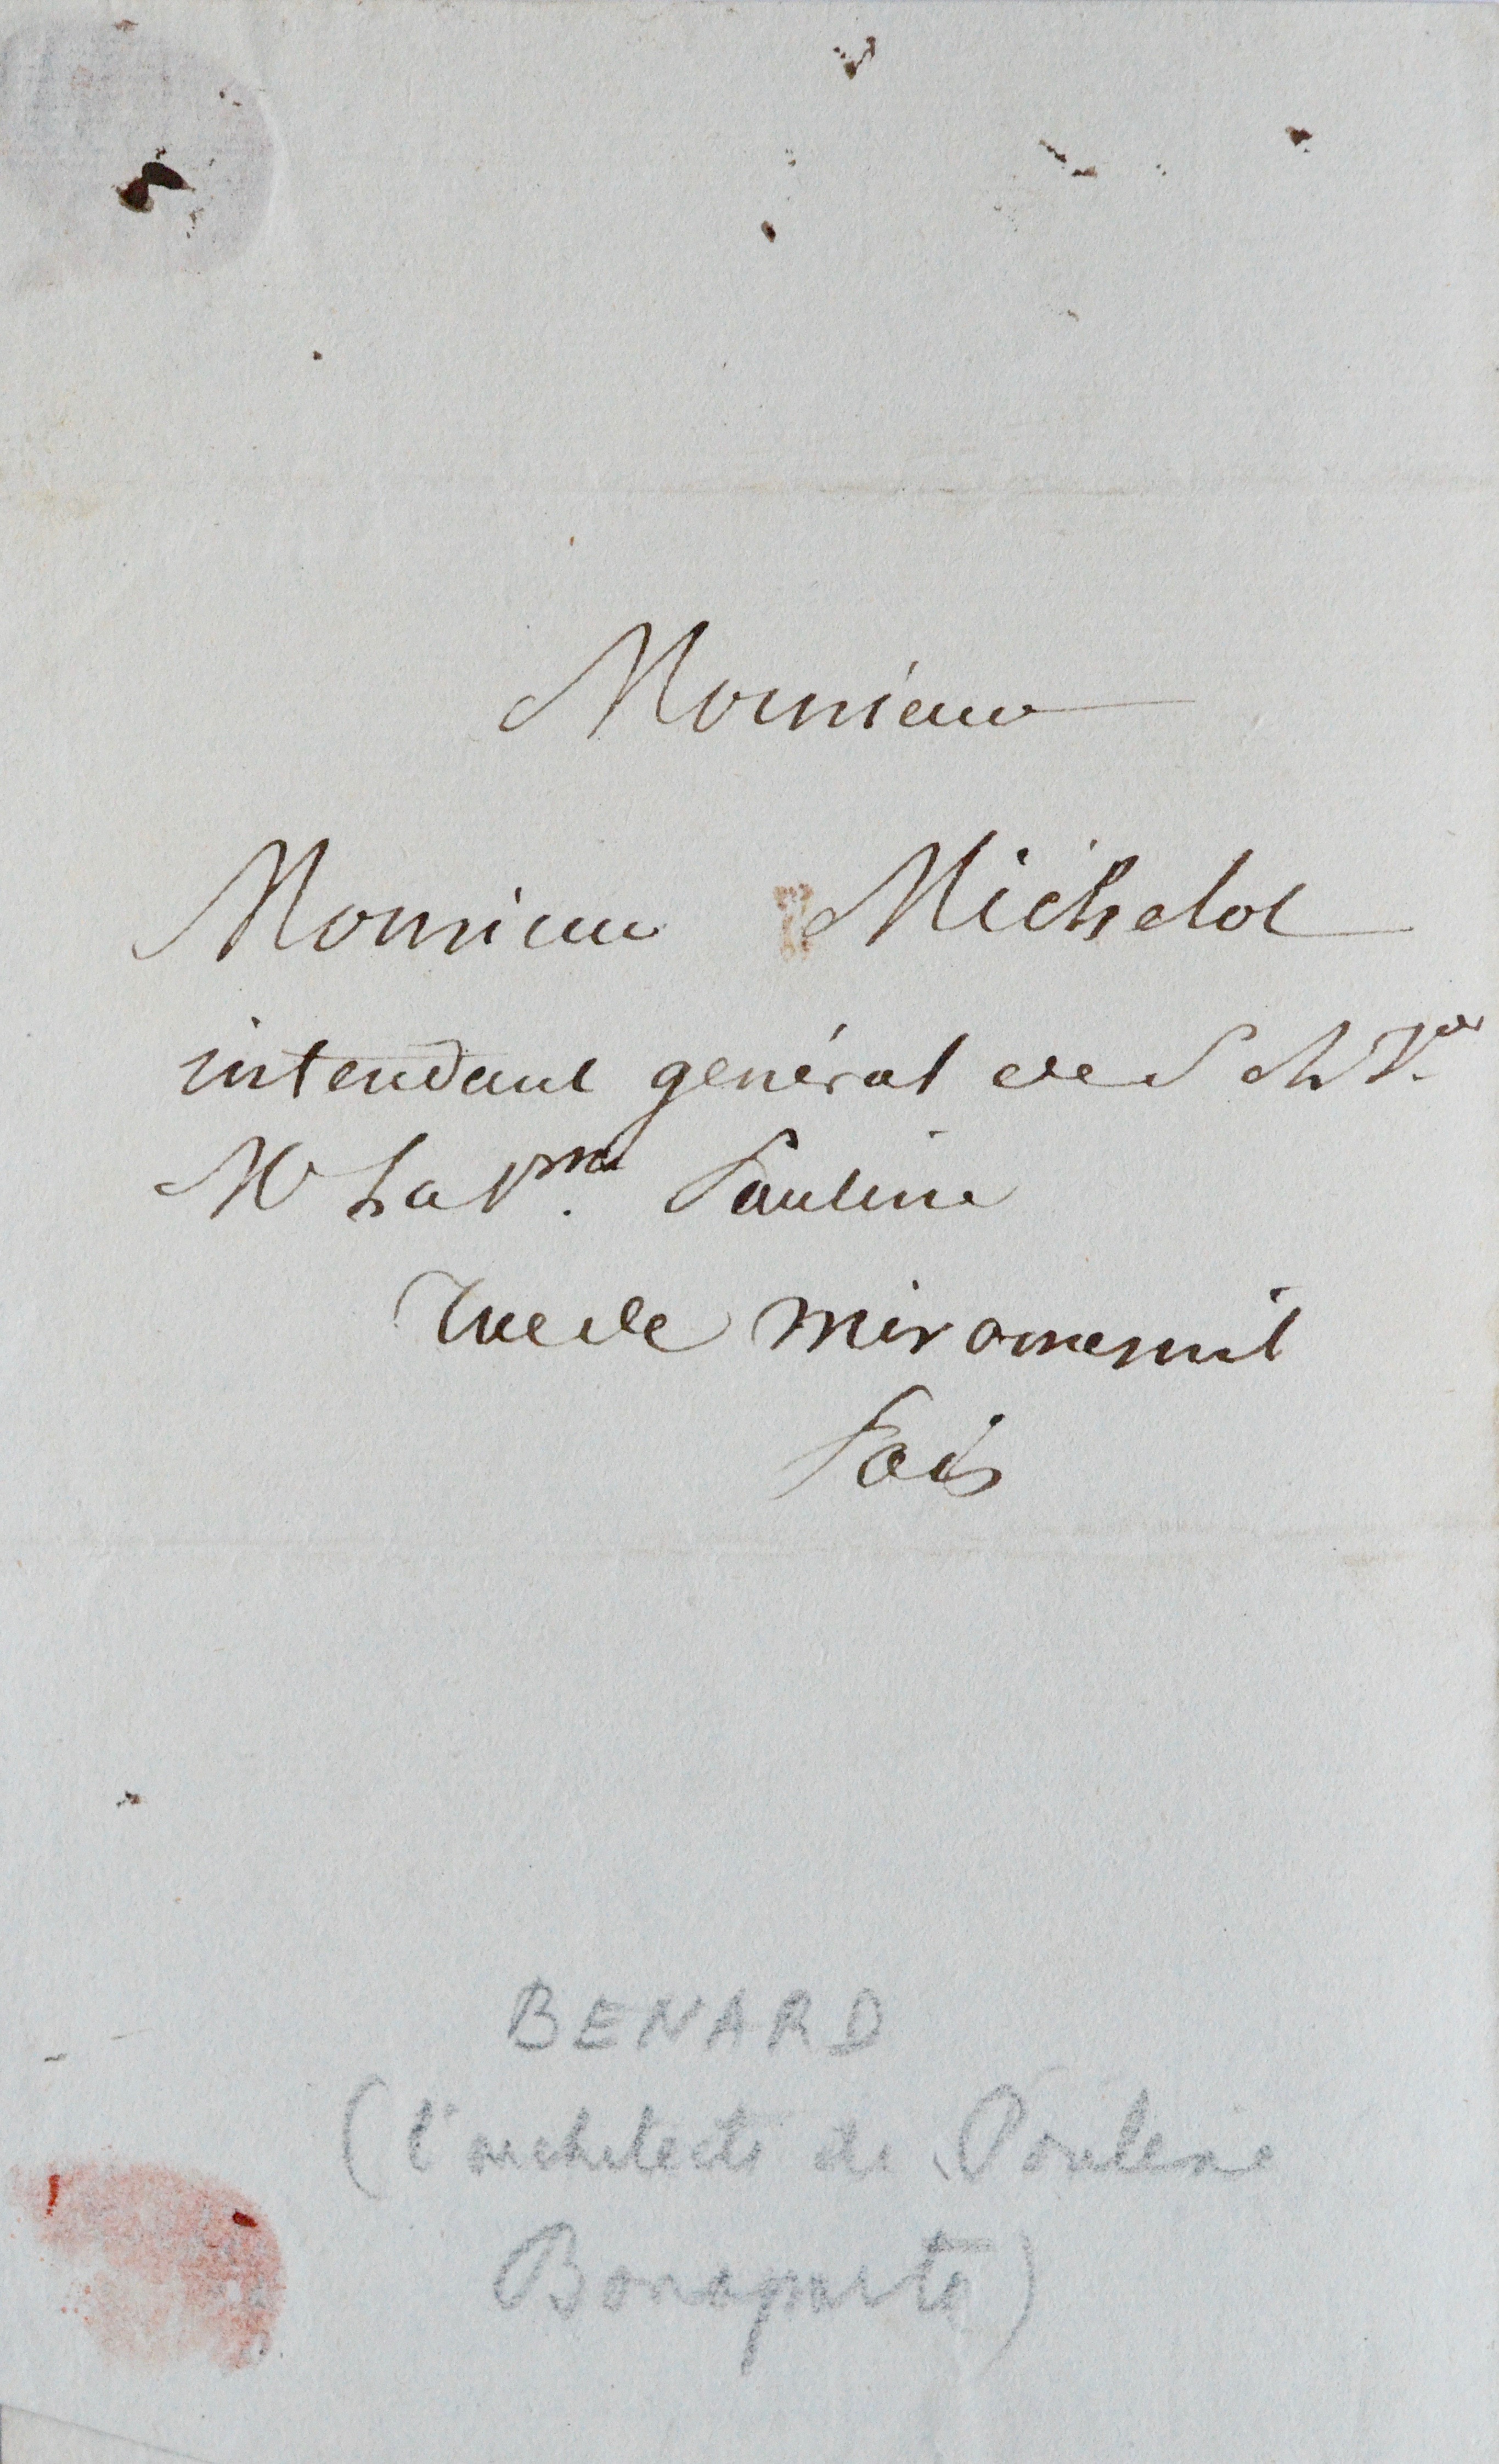 Monsieur
Monsieur Michelot
intendant général de S A I.
M la Psse. Pauline
Rue de miromenil
Paris
BENARD
(l'architecte de Pauline
Bonaparte)